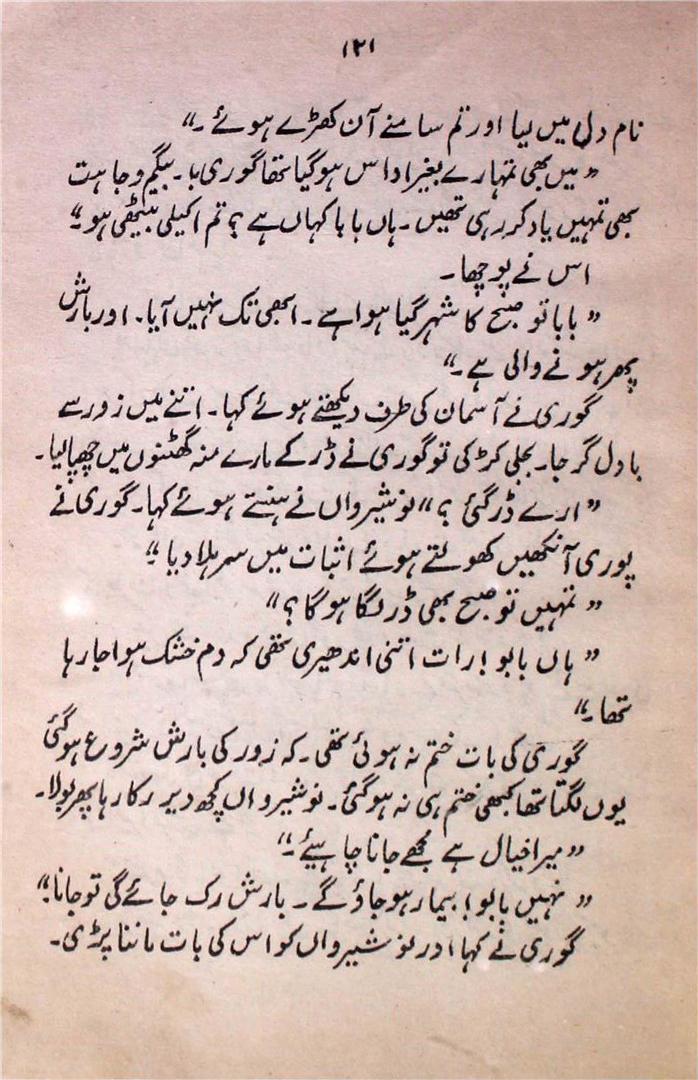 ۱۲۱
نام دل میں لیا اور تم سامنے آن کھڑے ہوئے۔“
”میں بھی تمہارے بغیر اداس ہو گیا تھا گوری بابا۔ بیگم وجاہت
بھی تمہیں یاد کر رہی تھیں۔ ہاں بابا کہاں ہے؟ تم اکیلی بیٹھی ہو۔“
اس نے پوچھا۔
”بابا تو صبح کا شہر گیا ہوا ہے۔ ابھی تک نہیں آیا۔ اور بارش
پھر ہونے والی ہے۔“
گوری نے آسمان کی طرف دیکھتے ہوئے کہا۔ اتنے میں زور سے
بادل گرجا۔ بجلی کڑکی تو گوری نے ڈر کے مارے منہ گھٹنوں میں چھپا لیا۔
”ارے ڈر گئی؟“ نوشیرواں نے ہنستے ہوئے کہا۔ گوری نے
پوری آنکھیں کھولتے ہوئے اثبات میں سر ہلا دیا۔“
”تمہیں تو صبح بھی ڈر لگا ہو گا؟“
”ہاں بابو! رات اتنی اندھیری تھی کہ دم خشک ہوا جا رہا
تھا۔“
گوری کی بات ختم نہ ہوئی تھی۔ کہ زور کی بارش شروع ہو گئی
یوں لگتا تھا کبھی ختم ہی نہ ہو گئی۔ نوشیرواں کچھ دیر رکا رہا پھر بولا۔
”میرا خیال ہے مجھے جانا چاہیئے۔“
”نہیں بابو! بیمار ہو جاؤ گے۔ بارش رک جائے گی تو جانا۔“
گوری نے کہا اور نوشیرواں کو اس کی بات ماننا پڑی۔